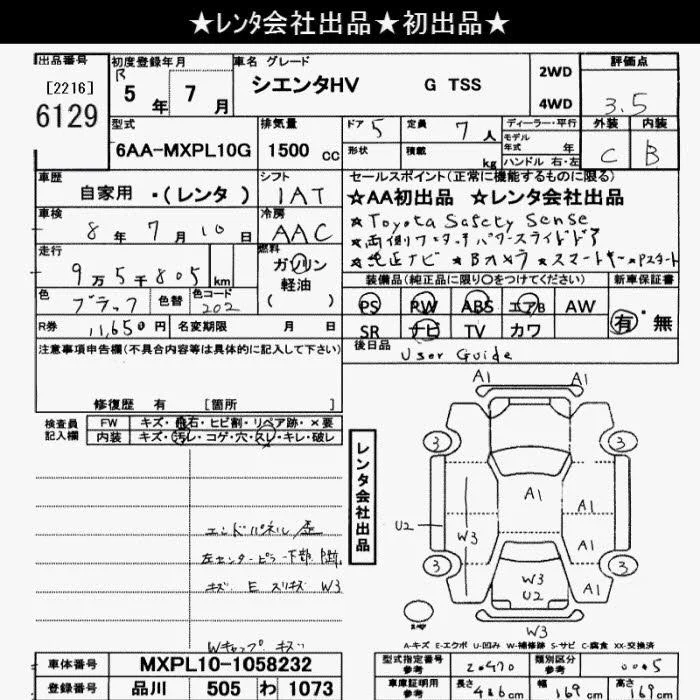 ★ﾚﾝﾀ会社出品★初出品★
出品番号 初度登録年月 車名 グレード 評価点
[2216] R 5 年 7 月 シエンタHV G TSS 2WD 3.5
6129 4WD
型式 排気量 ドア 5 定員 7 人 ディーラー・平行 外装 内装
6AA-MXPL10G 1500 cc 形状 積載 kg モデル年式 年 C B
ハンドル 右・左
車歴 シフト セールスポイント(正常に機能するものに限る)
自家用 ・(レンタ ) IAT ★AA初出品 ★レンタ会社出品
車検 冷房 ★Toyota Safety Sense
8 年 7 月 10 日 AAC ★両側ワンタッチパワースライドドア
走行 燃料 ★純正ナビ ★Bカメラ ★スマートキー★Pスタート
9 万 5 千 805 km ガソリン 軽油 ( ) 装備品(純正品に限り〇をつけてください) 新車保証書
色 ブラック 色替 色コード 202 PS PW ABS エアB AW 有・無
R券 11,650 円 名変期限 月 日 SR ナビ TV カワ
注意事項申告欄(不具合内容等は具体的に記入して下さい) 後日品 User Guide
修復歴 有 [箇所 ]
検査員 記入欄 FW キズ・飛石・ヒビ割・リペア跡・×要
内装 キズ・汚レ・コゲ・穴・スレ・キレ・破レ
レンタ会社出品
A1 A1
3 3
A1 A1
U2 W3 A1
3 W3 U2 A1 3
W3
エンドパネル歪
左センターピラー下部凹
キズ E スリキズ W3
Wキャップ キズ
A-キズ E-エクボ U-凹み W-補修跡 S-サビ C-腐食 XX-交換済
車体番号 MXPL10-1058232 型式指定番号 参考 20470 類別区分 参考 0005
登録番号 品川 505 わ 1073 車庫証明用 参考 長さ 426 cm 幅 169 cm 高さ 169 cm